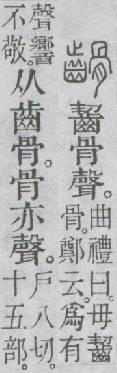 䶤齧骨聲。曲禮曰。毋齧
骨。鄭云。爲有
聲響
不敬。从齒骨。骨亦聲。戶八切。
十五部。